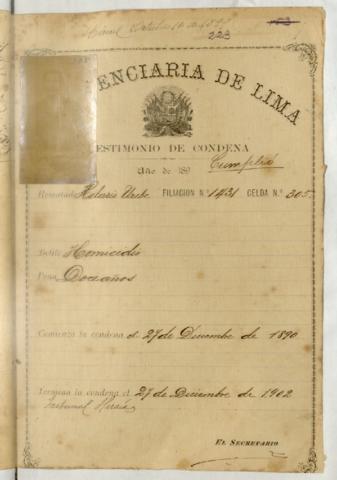 223
ENCIARIA DE LIMA
ESTIMONIO DE CONDENA
Año de 189
Cumplió
Rematado Hilario FILIACION N.º 1431 CELDA N.º 305
Delito Homicidio
Pena Doce años
Comienza la condena el 27 de Diciembre de 1890
Termina la condena el 27 de Diciembre de 1902
Tribunal
EL SECRETARIO